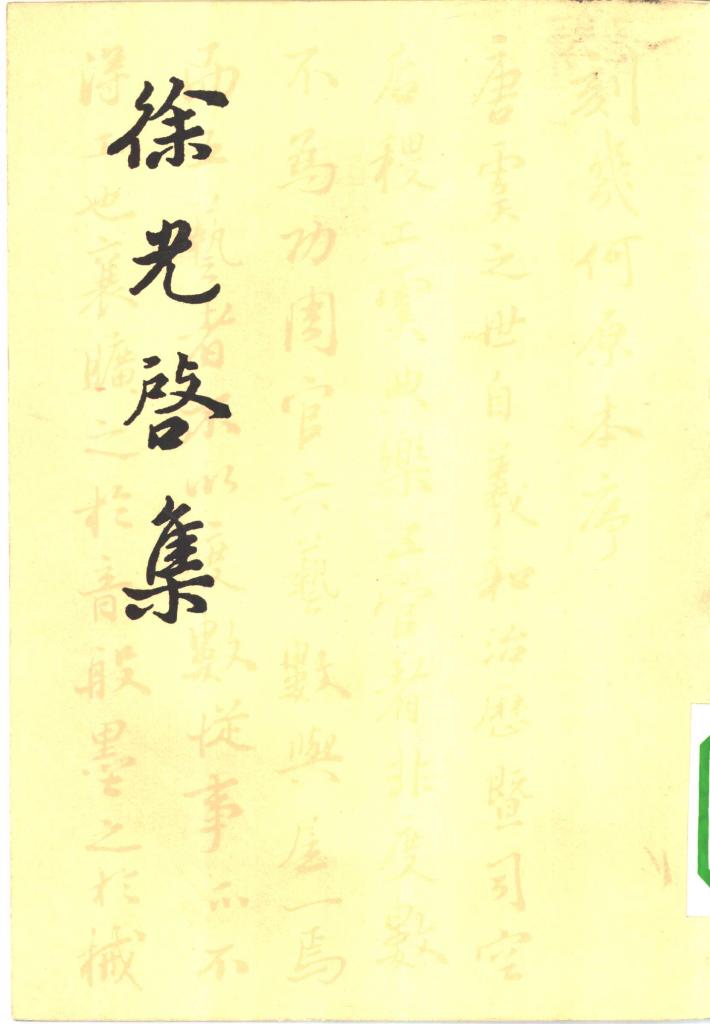 徐光啓集
刻幾何原本序
唐虞之世自羲和治歷暨司空
后稷工虞典樂五官者非度數
不為功周官六藝數與居一焉
而五藝者不以度數從事亦不
得工也襄曠之於音般墨之於械